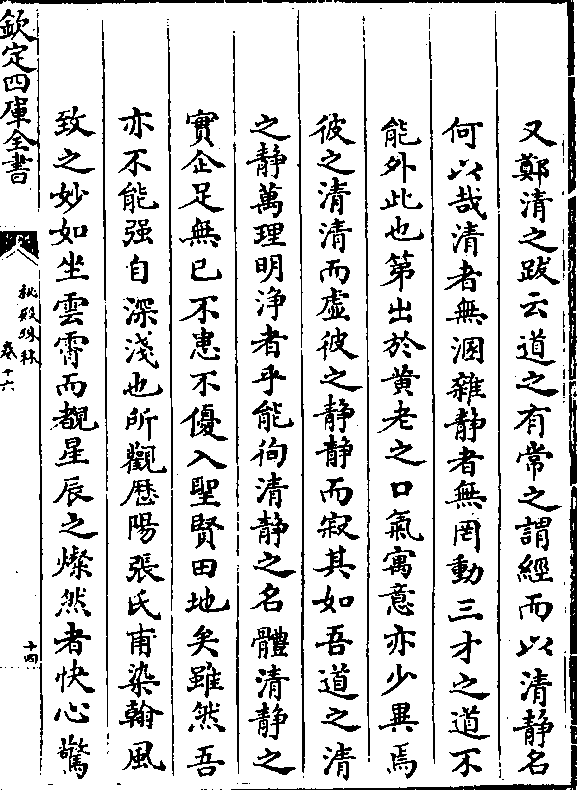 又鄭清之跋云道之有常之謂經而以清靜名
何以哉清者無溷雜静者無罔動三才之道不
能外此也第出於黄老之口氣寓意亦少異焉
彼之清清而虚彼之静静而寂其如吾道之清
之静萬理明浄者乎能徇清静之名體清静之
實企足無已不患不優入聖賢田地矣雖然吾
亦不能强自深淺也所觀歴陽張氏甫染翰風
致之妙如坐雲霄而覩星辰之燦然者快心驚
欽定四庫全書
祕殿珠林
卷十六
十四